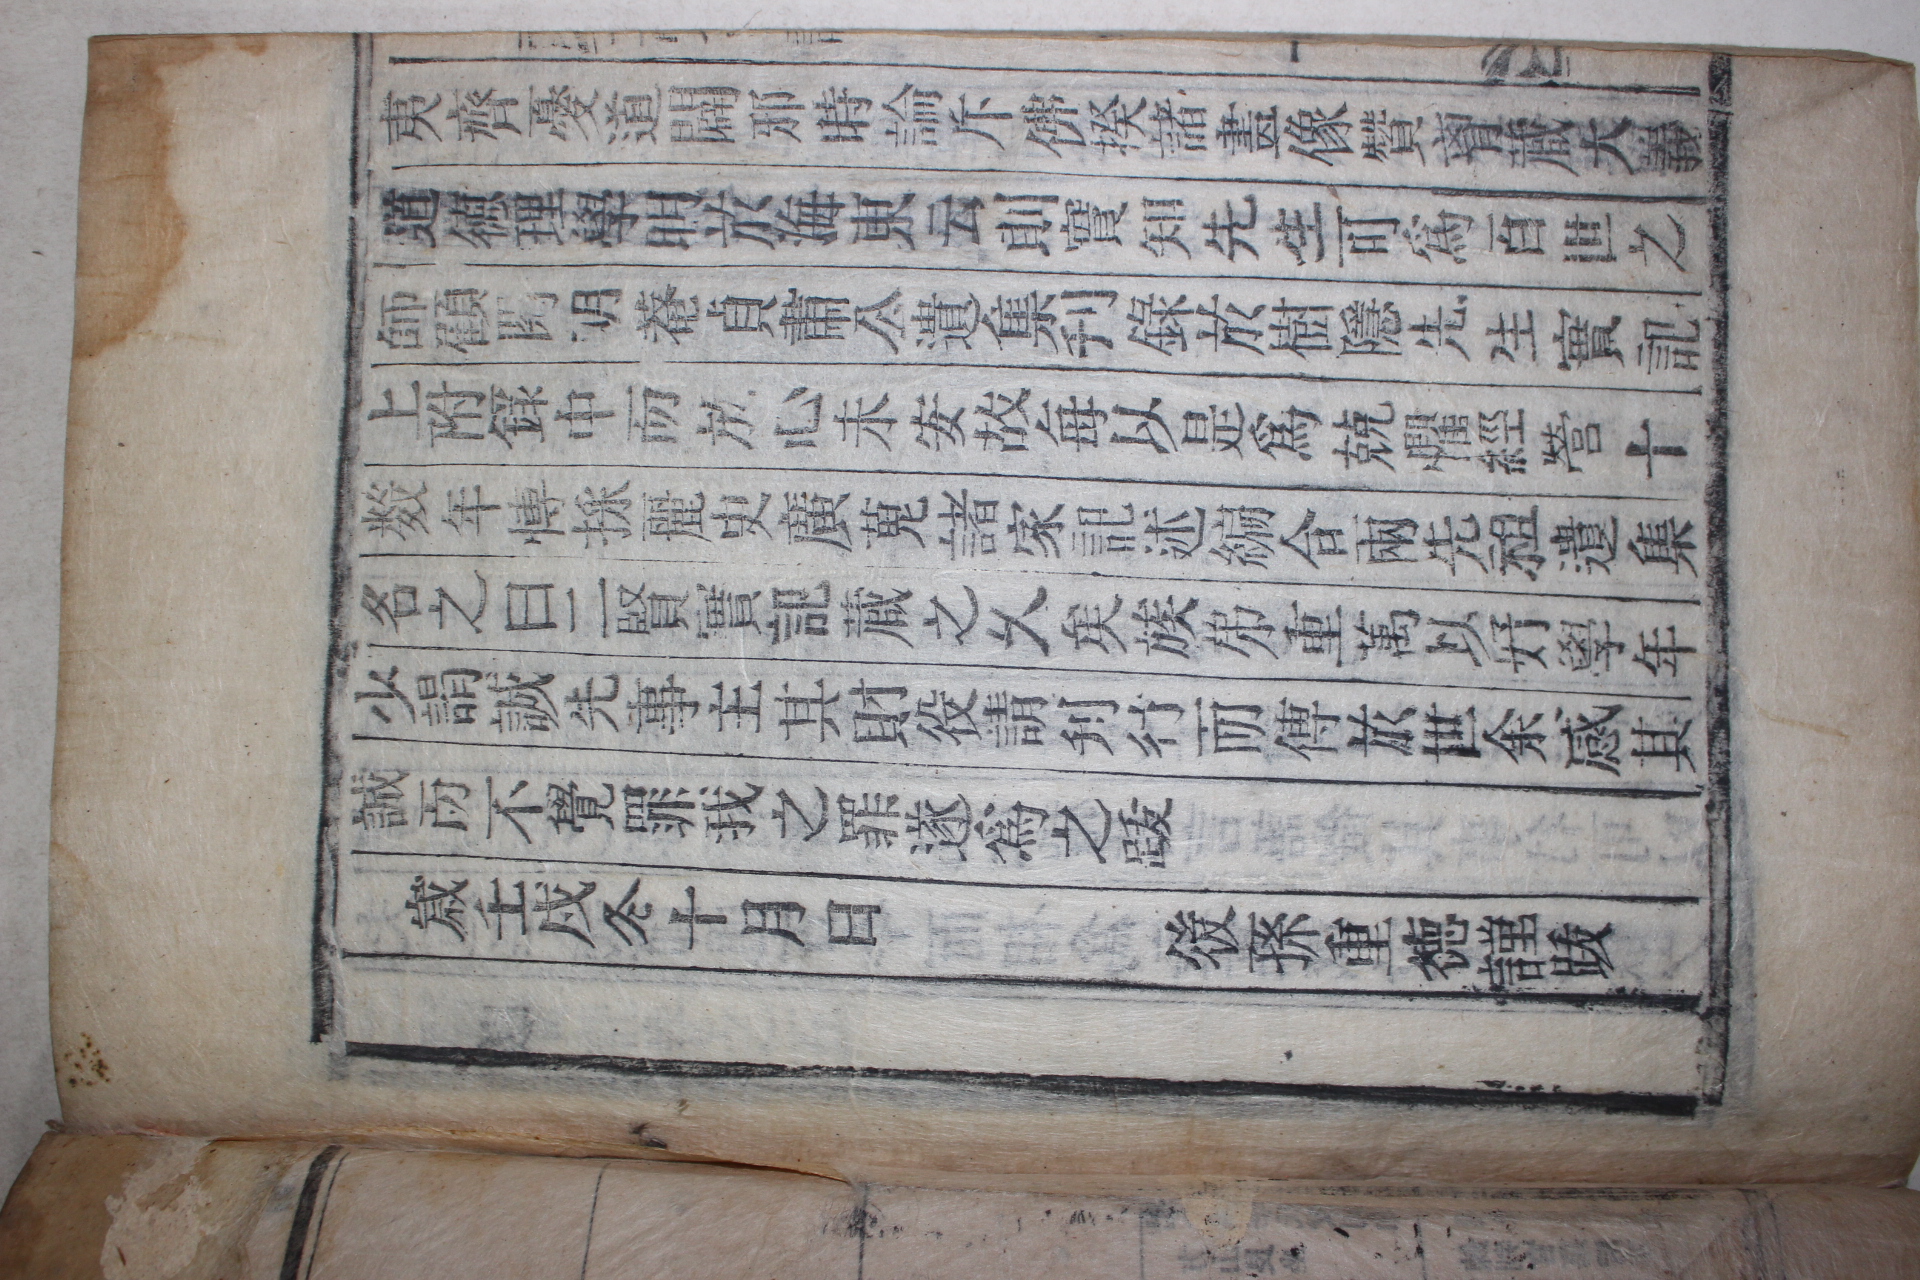 夷齊憂道闢邪時論斥佛揆諸畫像贊藏大義
道德理學明於海東云則實知先生可爲百世之
師顧明菴貞肅公遺集刊錄於樹隱先生實記
上附錄中而於心未安故每以是爲兢懼經營十
數年博採麗史廣蒐諸家記述編合兩先祖遺集
名之曰二賢實記藏之久矣族弟重萬以好學年
少謁誠先事主其財役請刊行而傳於世余感其
誠而不覺罪我之罪遂爲之跋
歲壬戌冬十月日 後孫重德謹跋